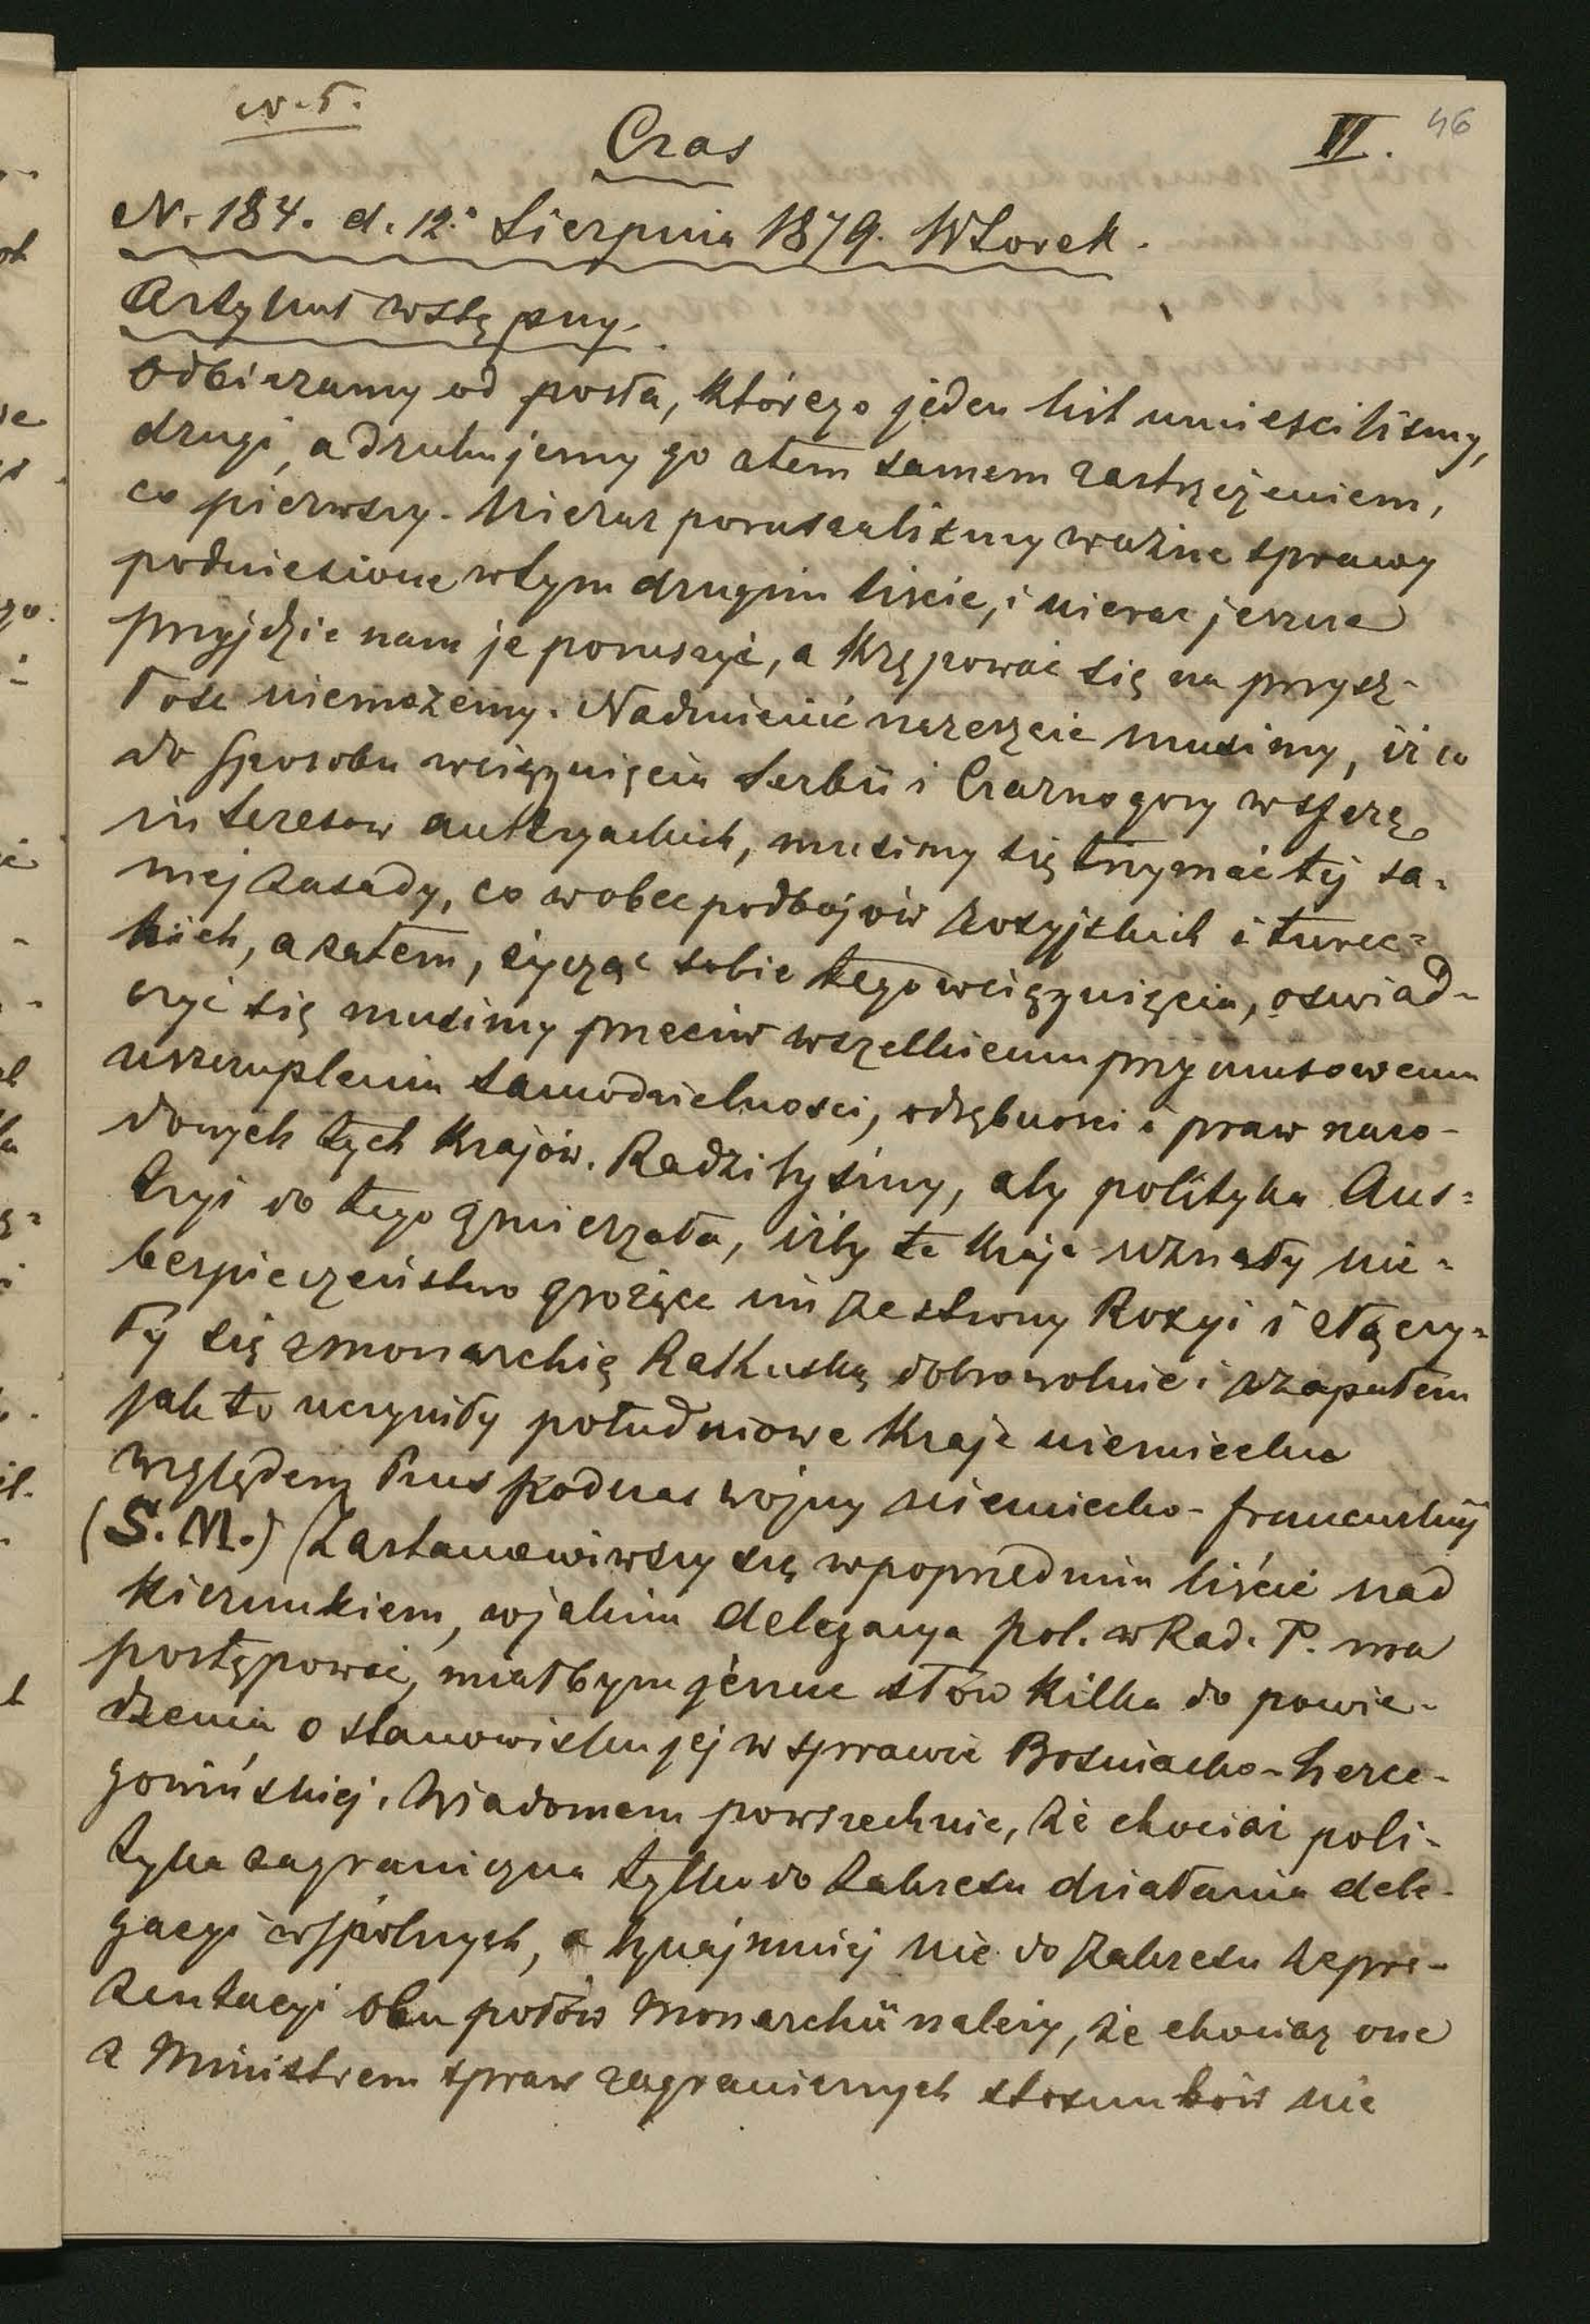 N. 5.
Czas
VI. 46
N. 184. d. 12. Sierpnia 1879. Wtorek.
Artykuł wstępny.
Odbieramy od posła, którego jeden list umieściliśmy,
drugi, a drukujemy go z tem samem zastrzeżeniem,
co pierwszy. Nieraz poruszaliśmy ważne sprawy
podniesione w tym drugim liście, i nieraz jeszcze
przyjdzie nam je poruszyć, a krępować się na przysz-
łość niemożemy. Nadmienić nareszcie musimy, iż co
do sposobu wciągnięcia Serbii i Czarnogory w sferę
interesow austryackich, musimy się trzymać tej sa-
mej zasady, co wobec podbojów rosyjskich i turec-
kich, a zatem, życząc sobie tego wciągnięcia, oswiad-
czyć się musimy przeciw wszelkiemu przymusowemu
uszczupleniu samodzielnosci, odrębności i praw naro-
dowych tych krajów. Radzilyśmy, aby polityka Aus-
tryi do tego zmierzała, iżby te kraje uznały nie-
bespieczeństwo grożące im ze strony Rosyi i złączy-
ły się z monarchią Rakuską dobrowolnie i z zapałem
jak to uczyniły południowe kraje niemieckie
względem Prus podczas wojny niemiecko-francuskiej
(S. M.) (Zastanowiwszy się w poprzednim liście nad
kierunkiem, w jakim delegacya pol. w Rad. P. ma
postępować, miałbym jeszcze słów kilka do powie-
dzenia o stanowisku jej w sprawie Bosniacko-herce-
gowińskiej. Wiadomem powszechnie, że chociaż poli-
tyka zagraniczna tylko do zakresu działania dele-
gacyi wspólnych, a bynajmniej nie do zakresu repre-
zentacyi obu połów Monarchii należy, że chociaz one
z Ministrem spraw zagranicznych stosunków nie